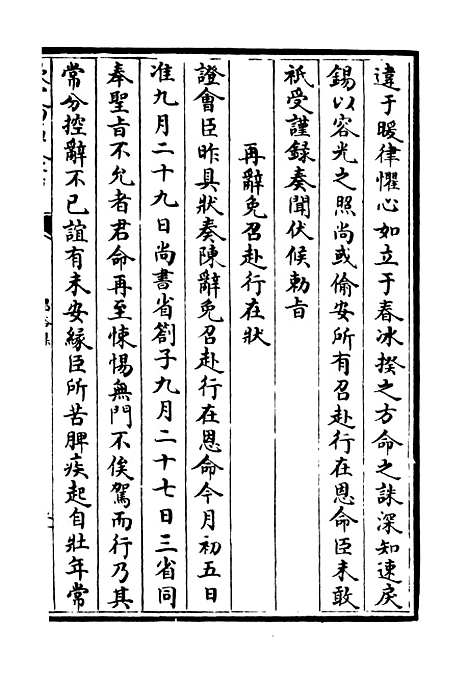 違于暖律懼心如立于春冰揆之方命之誅深知速戾
錫以容光之照尚或偷安所有召赴行在恩命臣未敢
祇受謹録奏聞伏候勅㫖
再辭免召赴行在狀
證會臣昨具狀奏陳辭免召赴行在恩命今月初五日
准九月二十九日尚書省劄子九月二十七日三省同
奉聖㫖不允者君命再至悚惕無門不俟駕而行乃其
常分控辭不已誼有未安縁臣所苦脾疾起自壯年常